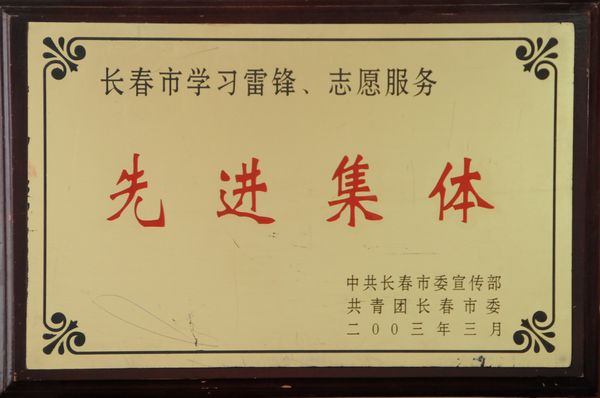 长春市学习雷锋、志愿服务
先进集体
中共长春市委宣传部
共青团长春市委
二00三年三月